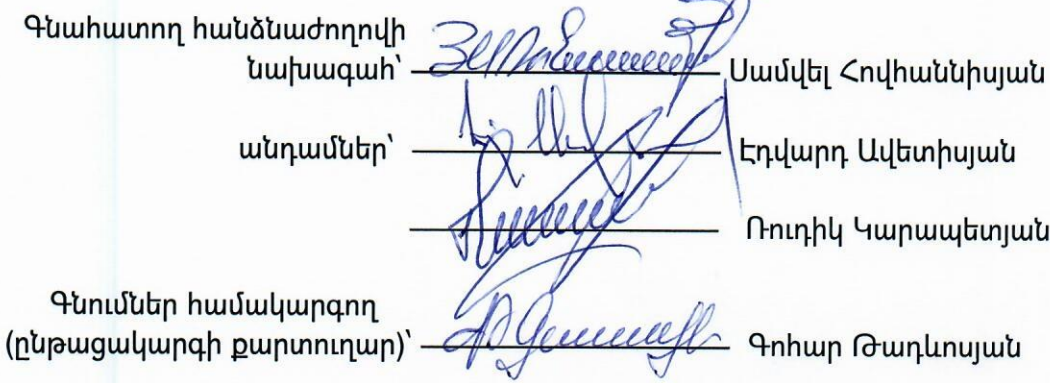 Գնահատող հանձնաժողովի
նախագահ՝ Սամվել Հովհաննիսյան
անդամներ՝ Էդվարդ Ավետիսյան
Ռուդիկ Կարապետյան
Գնումներ համակարգող
(ընթացակարգի քարտուղար)՝ Գոհար Թադևոսյան